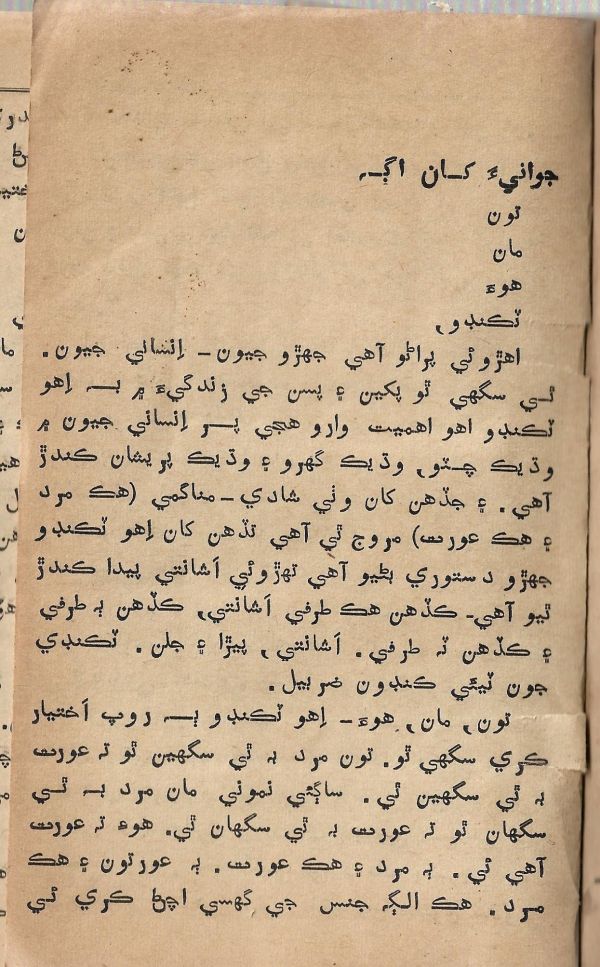 جوانيءَ کان اڳ۾
تون
مان
هوءَ
ٽڪنڊو،
اهڙوئي پراڻو آهي جهڙو جيون- اِنساني جيون.
ٿي سگهي ٿو پکين ۽ پسن جي زندگيءَ ۾ به اِهو
ٽڪنڊو اهو اهميت وارو هجي پر اِنساني جيون ۾
وڌيڪ چٽو، وڌيڪ گهرو ۽ وڌيڪ پريشان ڪندڙ
آهي. ۽ جڏهن کان وٺي شادي-مناگمي (هڪ مرد
۽ هڪ عورت) مروج ٿي آهي تڏهن کان اِهو ٽڪنڊو
جهڙو دستوري بڻيو آهي تهڙوئي اَشانتي پيدا ڪندڙ
ٿيو آهي- ڪڏهن هڪ طرفي اَشانتي، ڪڏهن ٻه طرفي
۽ ڪڏهن ٽه طرفي. اَشانتي، پيڙا ۽ جلن. ٽڪنڊي
جون ٽيئي ڪنڊون ضربيل.
تون، مان، هوءَ- اِهو ٽڪنڊو به روپ اَختيار
ڪري سگهي ٿو. تون مرد به ٿي سگهين ٿو ته عورت
به ٿي سگهين ٿي. ساڳئي نموني مان مرد به ٿي
سگهان ٿو ته عورت به ٿي سگهان ٿي. هوءَ ته عورت
آهي ئي. ٻه مرد ۽ هڪ عورت. ٻه عورتون ۽ هڪ
مرد. هڪ الڳ جنس جي گهسي اچڻ ڪري ئي